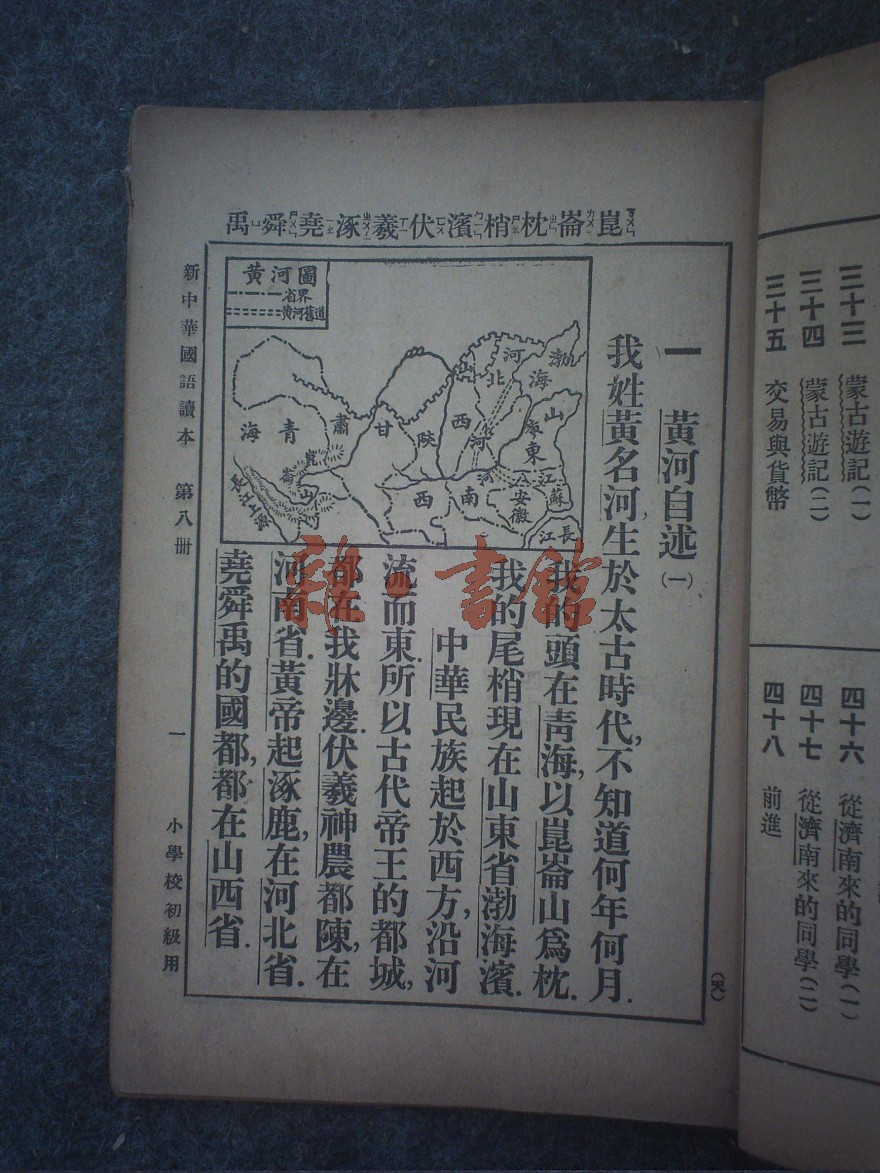 崑崙枕梢濱伏羲涿堯舜禹
一 黃河自述(一)
我姓黃名河,生於太古時代,不知道何年何月.
我的頭在靑海,以崑崙山爲枕.
我的尾梢現在山東省渤海濱.
中華民族起於西方,沿河
流而東.所以古代帝王的都城,
都在我牀邊.伏羲神農都陳,在
河南省.黃帝起涿鹿,在河北省.
堯舜禹的國都,都在山西省.
黃河圖
省界
黃河舊道
渤海
河北
山東
山西
陝西
甘肅
青海
河南
江蘇
安徽
長江
崑崙山
長江上源
新中華國語讀本 第八册
一
小學校初級用
(天)
三十三 蒙古遊記(一)
三十四 蒙古遊記(二)
三十五 交易與貨幣
四十六 從濟南來的同學(一)
四十七 從濟南來的同學(二)
四十八 前進
雜·書館